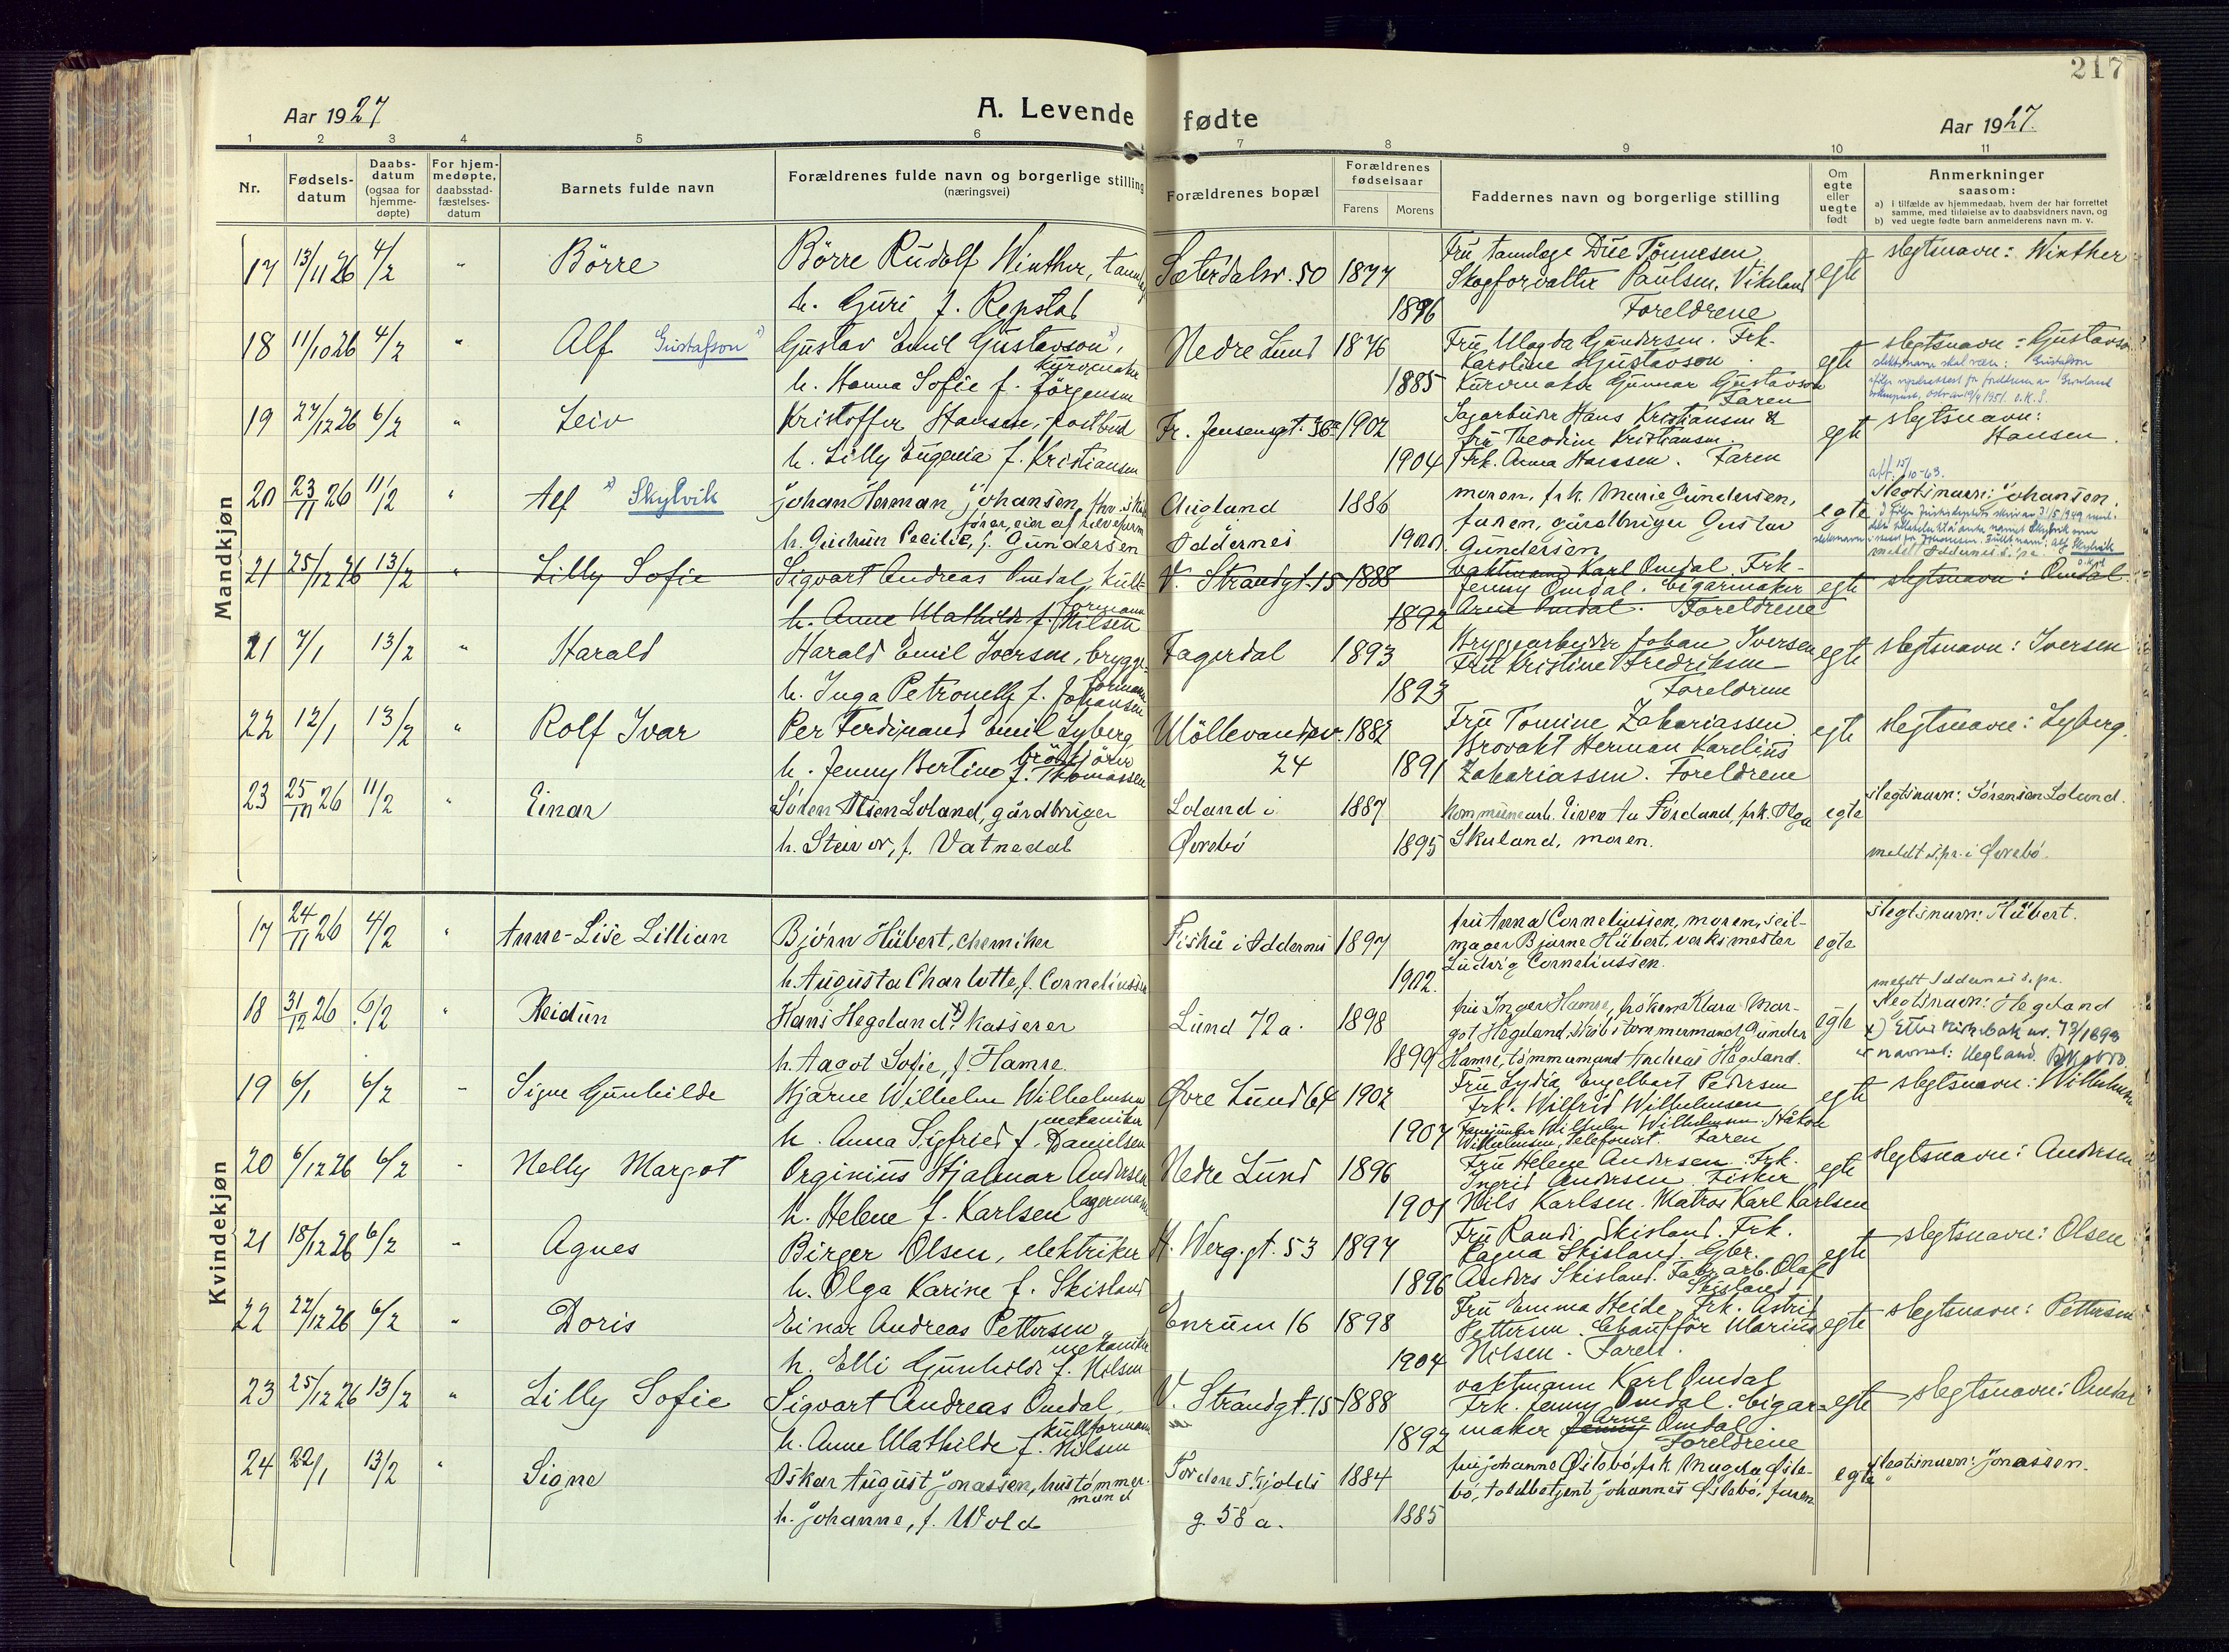 217
Aar 1927
A. Levende fødte
Aar 1927.
1 2 3 4 5 6 7 8 9 10 11
Nr.
Fødsels-
datum
Daabs-
datum
(ogsaa for
hjemme-
døpte)
For hjem-
medøpte,
daabsstad-
fæstelses-
datum
Barnets fulde navn
Forældrenes fulde navn og borgerlige stilling
(næringsvei)
Forældrenes bopæl
Forældrenes
fødselsaar
Farens Morens
Faddernes navn og borgerlige stilling
Om
egte
eller
uegte
født
Anmerkninger
saasom:
a) i tilfælde av hjemmedaab, hvem der har forrettet
samme, med tilføielse av to daabsvidners navn, og
b) ved uegte fødte barn anmelderens navn m. v.
Mandkjøn
17 13/11 26 4/2 " Börre Börre Rudolf Winther, Sæterdalsv. 50 1877 Fru tannlege Due Tönnesen egte slegtsnavn: Winther
Skogforvalter Paulsen, Vikeland
h. Guri f. Repstad 1896 Foreldrene
18 11/10 26 4/2 " Alf Gustafson x) Gustav Emil Gustavson x), Nedre Lund 1876 Fru Magda Gundersen. Frk. egte slegtsnavn: Gustavson
kurvmaker Karoline Gustavson. slektsnavn skal være: Gustafson
h. Hanna Sofie f. Jörgensen 1885 Kurvmaker Gunnar Gustavson
Faren
19 27/12 26 6/2 " Leiv Kristoffer Hansen, postbud Fr. Jensensgt. 36 1902 Sagarbeider Hans Kristiansen & egte slegtsnavn:
fru Theodine Kristiansen. Hansen.
h. Lilly Eugenia f. Kristiansen 1904 Frk. Anna Hansen. Faren
att. 15/10-63.
20 23/11 26 11/2 " Alf x) Skylvik Johan Herman Johansen, Augland 1886 moren, frk. Marie Gundersen, egte Slegtsnavn: Johansen.
faren, gårdbruger Gustav
h. Gudrun Cecilie, f. Gundersen Oddernes 1900. Gundersen meldt Oddernes s.pr.
21 25/12 26 13/2 " Lilly Sofie Sigvart Andreas Omdal, kull- V. Strandgt. 15 1888 vaktmann Karl Omdal. Frk. egte slegtsnavn: Omdal.
formann Jenny Omdal. Cigarmaker
h. Anne Mathilde f. Nilsen 1892 Arne Omdal. Foreldrene
21 7/1 13/2 " Harald Harald Emil Iversen, brygge- Fagerdal 1893 Bryggearbeider Johan Iversen egte slegtsnavn: Iversen
formann Fru Kristine Fredriksen
h. Inga Petronelle f. Johansen 1893 Foreldrene
22 12/1 13/2 " Rolf Ivar Per Ferdinand Emil Lyberg Möllevandsv. 1882 Fru Tomine Zakariassen egte slegtsnavn: Lyberg.
Brovakt Herman Karelius
h. Jenny Bertine f. Thomassen 24 1891 Zakariassen. Foreldrene
23 25/11 26 11/2 " Einar Søren Olsen Loland, gårdbruger Loland i 1887 egte slegtsnavn: Sørensen Loland.
h. Steinvor, f. Vatnedal Øvrebö 1895 Skuland, moren. meldt s.pr. i Øvrebö.
Kvindekjøn
17 24/11 26 4/2 " Anne-Lise Lillian Bjørn Hübert, chemiker Fiskå i Oddernes 1897 fru Anna Corneliussen, moren, seil- egte slegtsnavn: Hübert.
mager Bjarne Hübert, verksmester
h. Augusta Charlotte, f. Corneliussen 1902. Ludvig Corneliussen. meldt Oddernes s.pr.
18 31/12 26 6/2 " Reidun Hans Hegeland x) kasserer Lund 72a. 1898 fru Inger Hamre, frøkens Klara Mar- egte Slegtsnavn: Hegeland
got Hegeland, skibstømmermand Gunder x) Etter kirkebok nr. 73/1898
h. Aagot Sofie, f. Hamre. 1899 Hamre, tømmermand Andreas Hegeland. er navnet: Hegland.
19 6/1 6/2 " Signe Gunhilde Bjarne Wilhelm Wilhelmsen Øvre Lund 64 1902 Fru Lydia Engelbart Pedersen egte slegtsnavn: Wilhelmsen
mekaniker Frk. Wilfrid Wilhelmsen
h. Anna Sigfried f. Danielsen 1907 Wilhelm Wilhelmsen. Håkon
Wilhelmsen, telefonist. Faren
20 6/12 26 6/2 " Nelly Margot Orginius Hjalmar Andersen Nedre Lund 1896 Fru Helene Andersen. Frk. egte slegtsnavn: Andersen
lagermann Ingrid Andersen. Fisker
h. Helene f. Karlsen 1901 Nils Karlsen. Matros Karl Karlsen
21 18/12 26 6/2 " Agnes Birger Olsen, elektriker H. Werg.gt. 53 1897 Fru Randi Skisland. Frk. egte slegtsnavn: Olsen
Ragna Skisland. Gbr.
h. Olga Karine f. Skisland 1896 Anders Skisland. Fabr.arb. Olaf
Skisland
22 22/12 26 6/2 " Doris Einar Andreas Pettersen Enrum 16 1898 Fru Emma Heide. Frk. Astrid egte slegtsnavn: Pettersen
mekaniker Pettersen. Chaufför Marius
h. Elli Gunhilde f. Nilsen 1904 Nilsen. Faren.
23 25/12 26 13/2 " Lilly Sofie Sigvart Andreas Omdal, V. Strandgt. 15 1888 vaktmann Karl Omdal egte slegtsnavn: Omdal
kullformann Frk. Jenny Omdal. Cigar-
h. Anne Mathilde f. Nilsen 1892 maker Jenny Arne Omdal
Foreldrene
24 22/1 13/2 " Signe Oskar August Jonassen, hustømmer- Tordenskjolds 1884 fru Johanne Øilebö, frk. Magda Øile- egte slegtsnavn: Jonassen.
mand bö, toldbetjent Johannes Øilebö, faren
h. Johanne, f. Wold g. 58 a. 1885